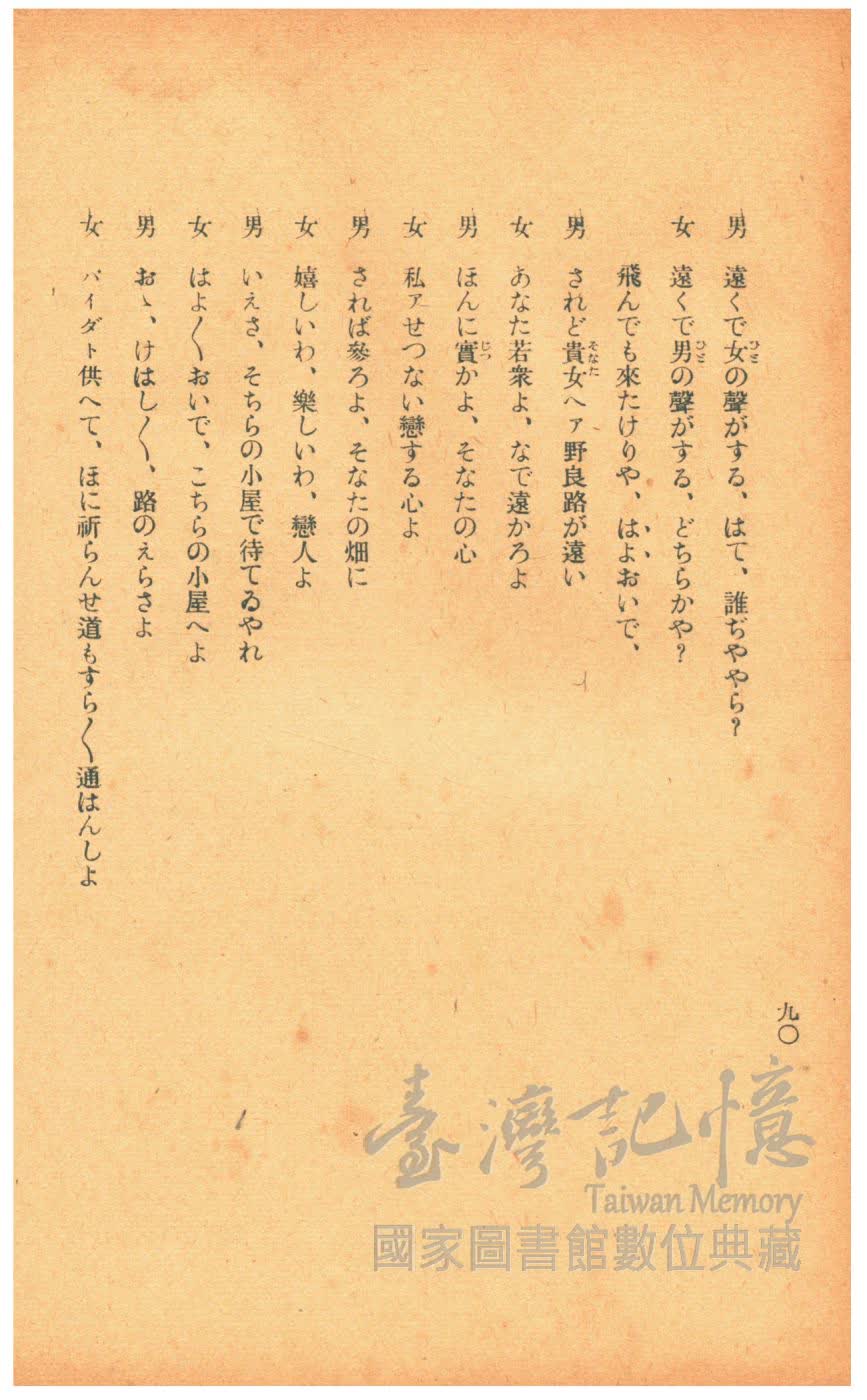 男　遠くで女の聲がする、はて、誰ぢややら？
女　遠くで男の聲がする、どちらかや？
飛んでも來たけりや、はよおいで、
男　されど貴女へァ野良路が遠い
女　あなた若衆よ、なで遠かろよ
男　ほんに實かよ、そなたの心
女　私アせつない戀する心よ
男　されば參ろよ、そなたの畑に
女　嬉しいわ、樂しいわ、戀人よ
男　いえさ、そちらの小屋で待てゐやれ
女　はよ〳〵おいで、こちらの小屋へよ
男　おゝ、けはし〳〵、路のえらさよ
女　バイダト供へて、ほに祈らんせ道もすら〳〵通はんしよ
九〇
臺灣記憶
Taiwan Memory
國家圖書館數位典藏